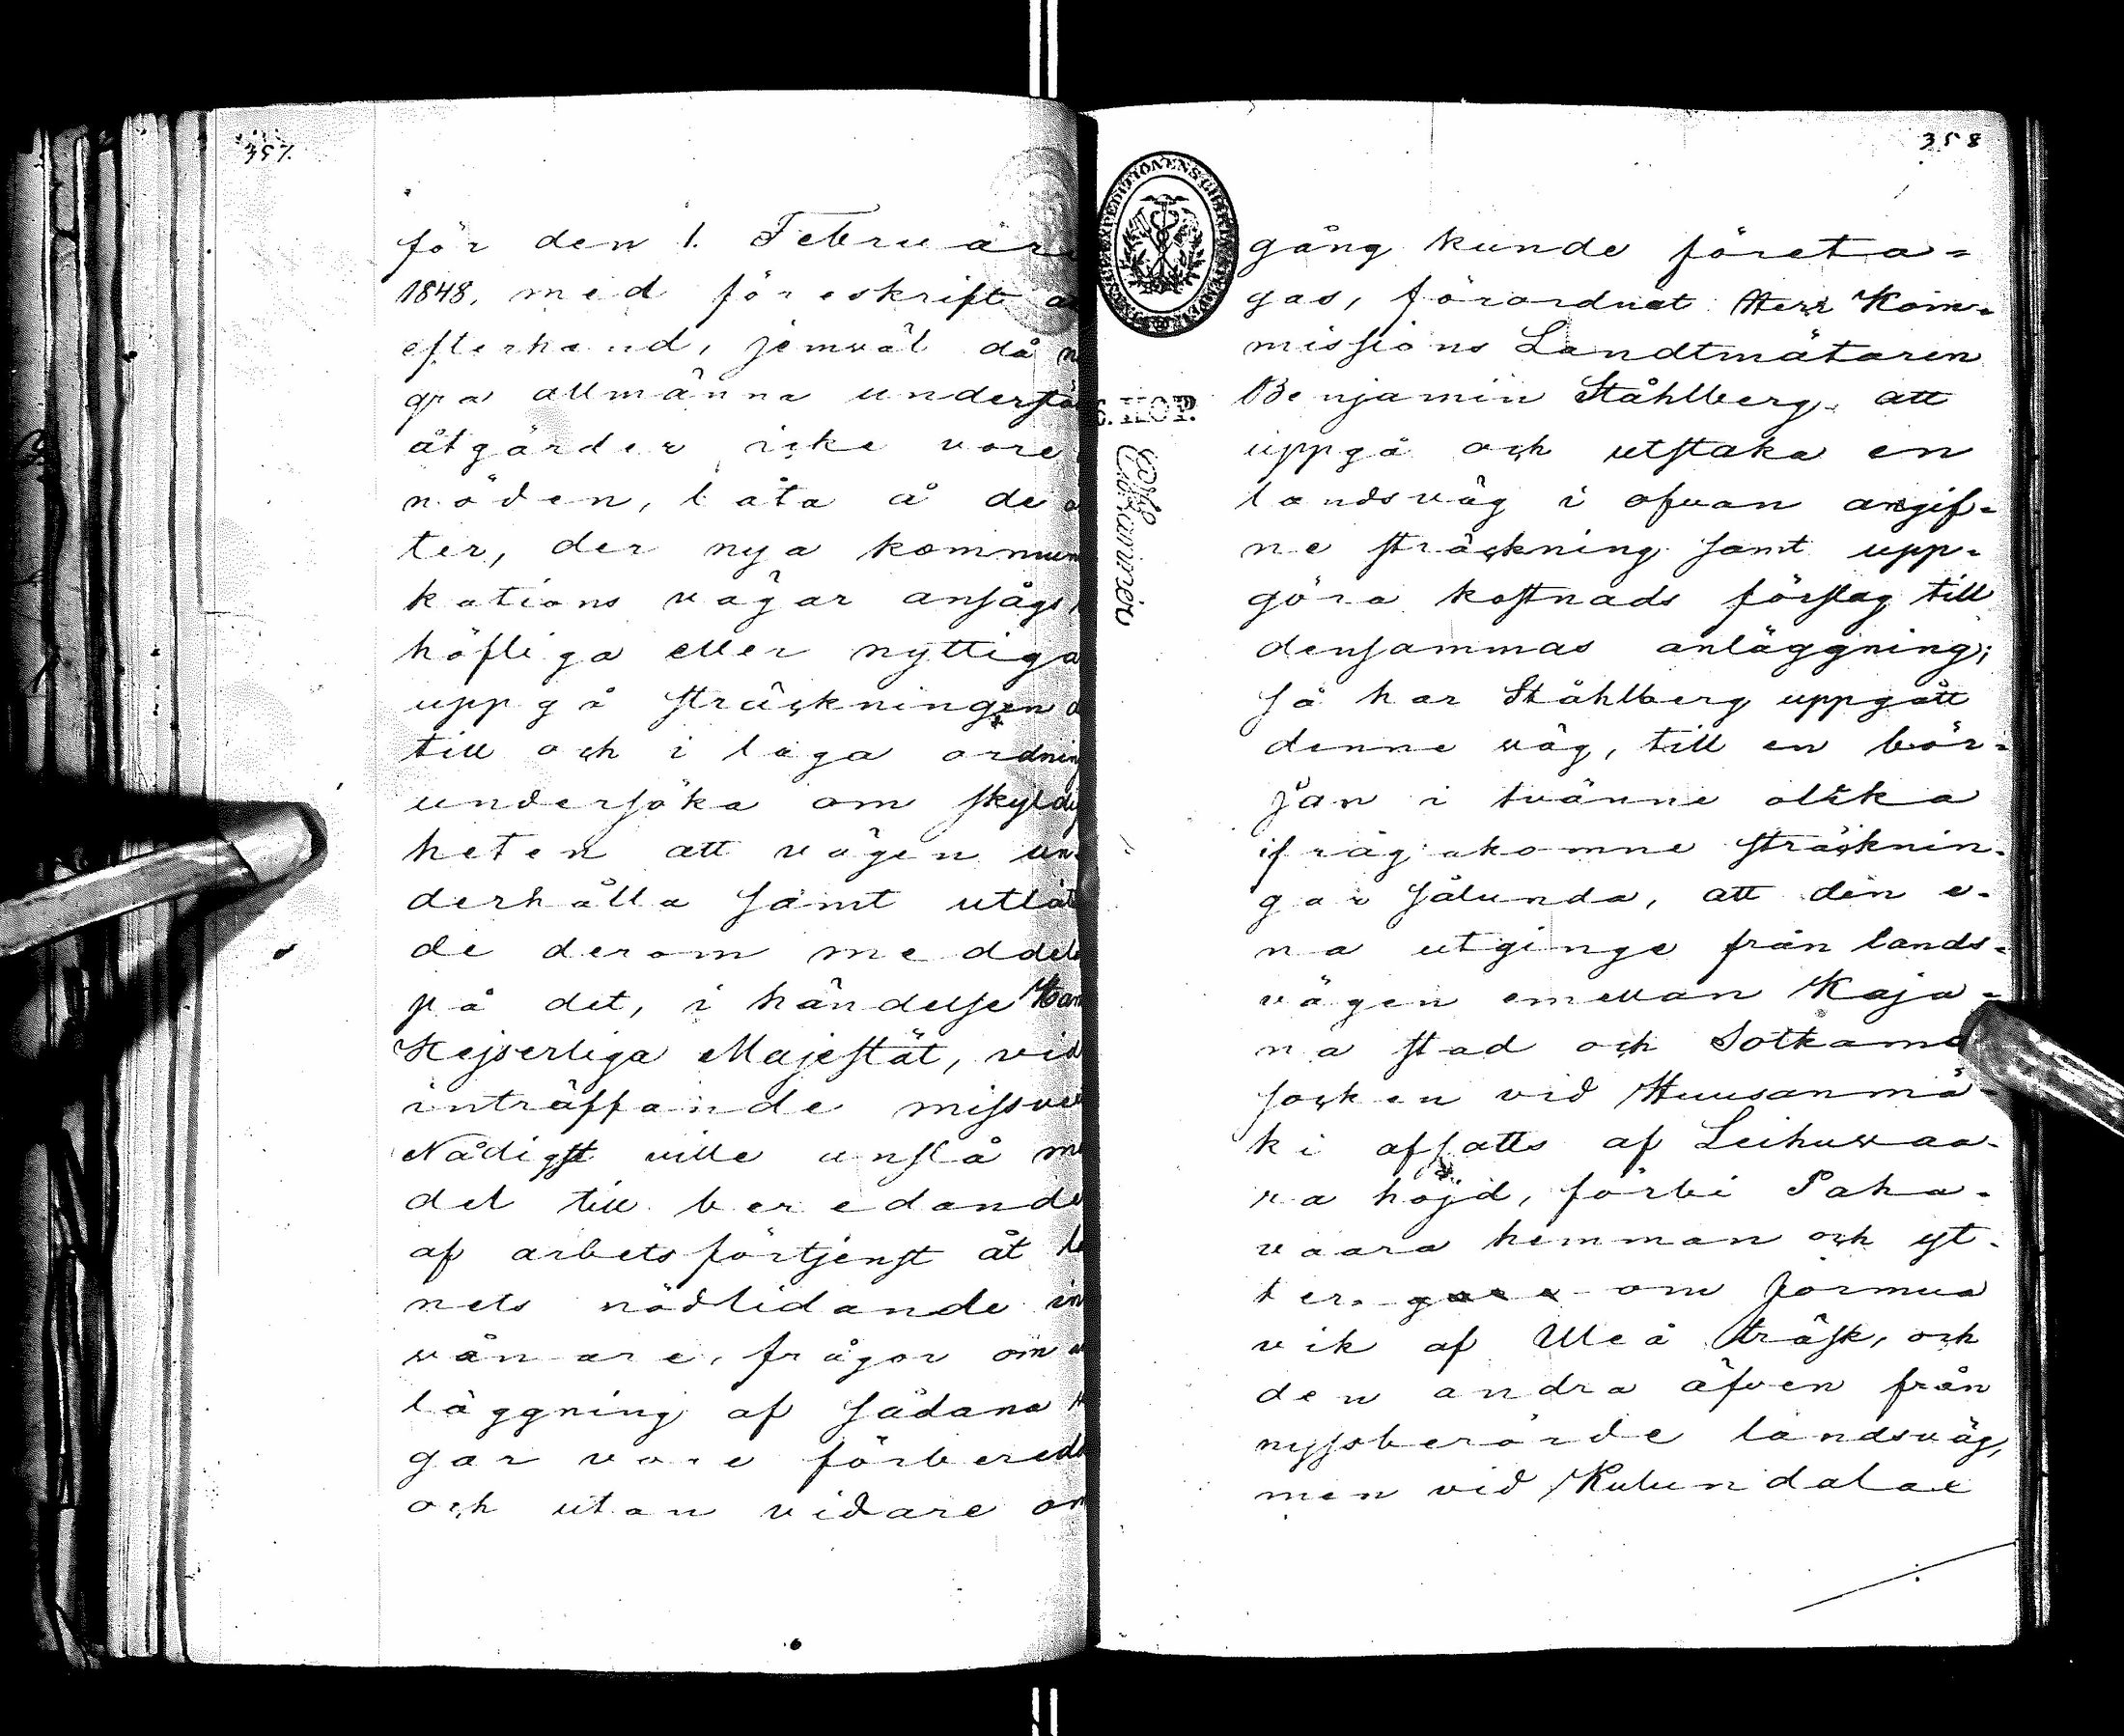 357.
för den 1. Februari
1848, med föreskrift a
efterhand, jemväl då n
gra allmänna understö
åtgärder icke vore
nöden, låta å de o
ter, der nya kommuni
kations vägar ansågs
höfliga eller nyttiga
uppgå sträckningen d
till och i laga ordning
undersöka om skyldig
heten att vägen un-
derhålla samt utlåt
de derom meddela
på det, i händelse Hans
Kejserliga Majestät, vid
inträffande missvex
Nådigst ville anslå me
del till beredande
af arbetsförtjenst åt la
nets nödlidande in
vånare, frågor om a
läggning af sådana v
gar vore förberedd
och utan vidare om
358
gång kunde företa-
gas, förordnat Herr Kom-
missions Landtmätaren
Benjamin Ståhlberg att
uppgå och utstaka en
landsväg i ofvan angif-
ne sträckning samt upp-
göra kostnads förslag till
densammas anläggning;
så har Ståhlberg uppgått
denne väg, till en bör-
jan i tvänne olika
ifrågakomne sträcknin-
gar sålunda, att den e-
na utginge från lands-
vägen emellan Kaja-
na stad och Sotkamo
socken vid Huusanmä-
ki affatts af Leihuvaa-
ra höjd, förbi Paha-
vaara hemman och yt-
ter. om Jormua
vik af Uleå träsk, och
den andra äfven från
nyssberörde landsväg,
men vid Kulundalae
6. KOP.